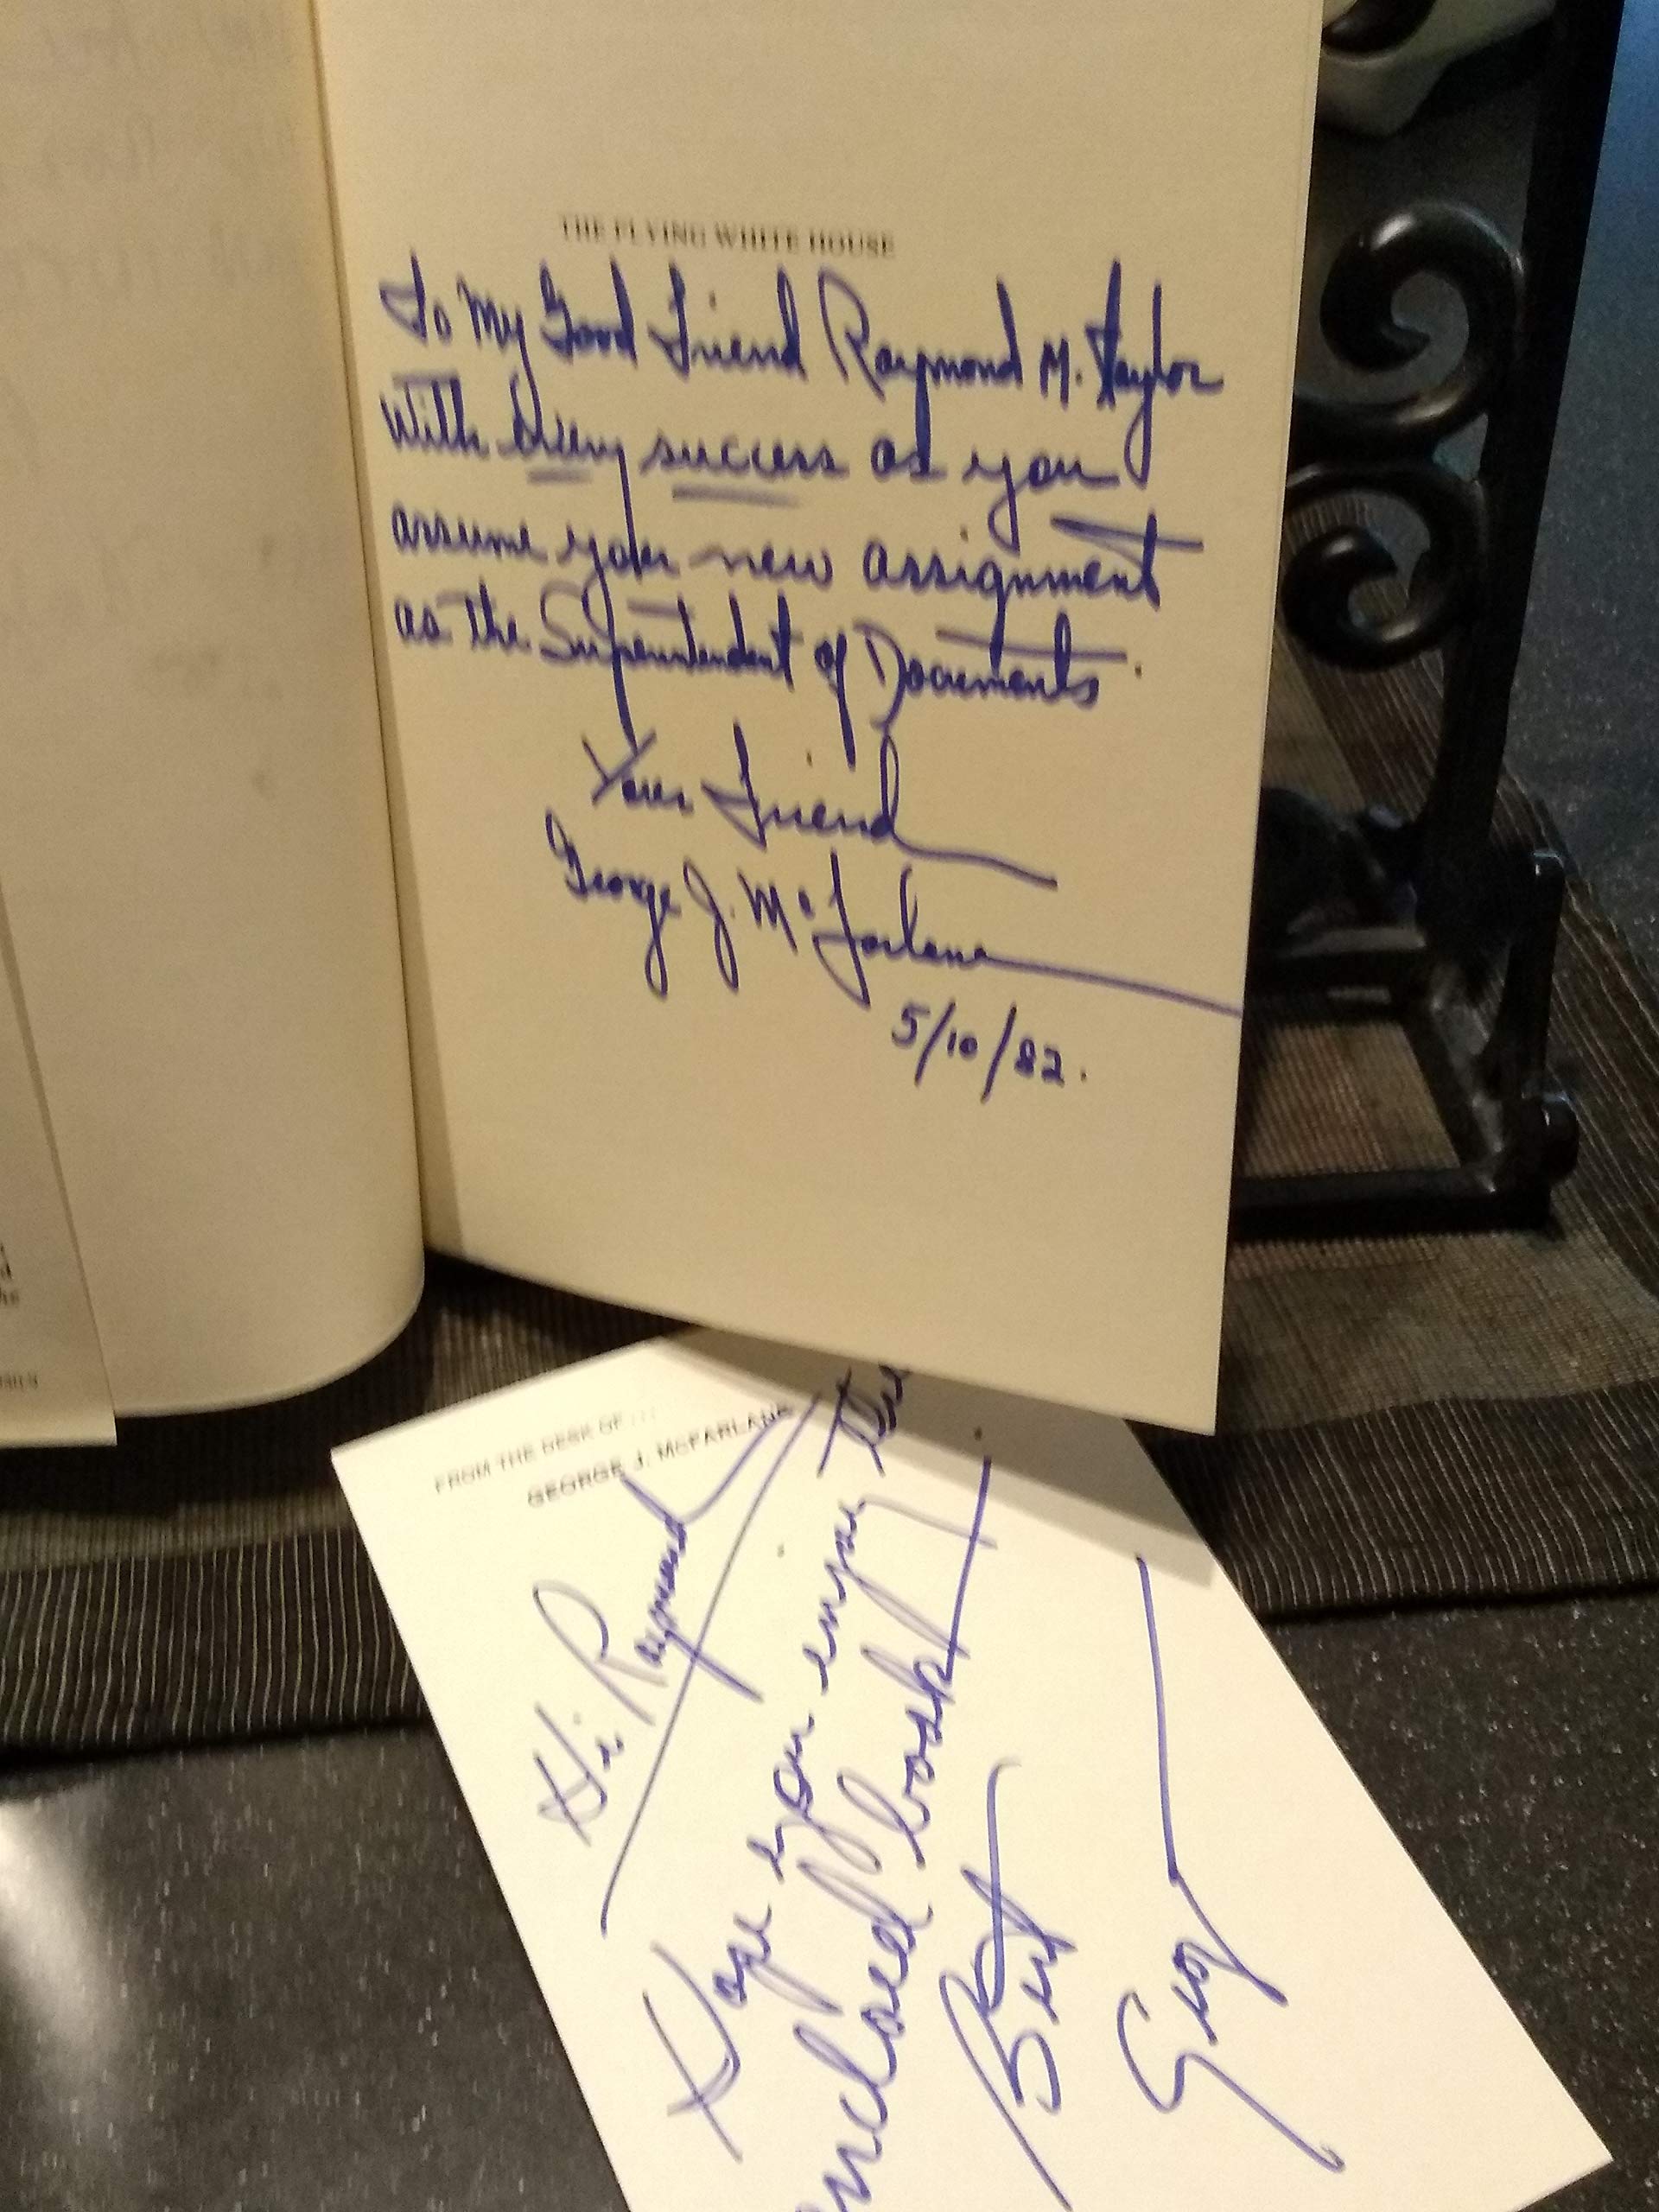 THE FLYING WHITE HOUSE
To My Good Friend Raymond M. Taylor
With Every success as you
assume your new assignment
as the Superintendent of Documents.
Your Friend
George J. McFarlane
5/10/82.
FROM THE DESK OF...
GEORGE J. McFARLANE
Hi Raymond
Hope you enjoy the
enclosed book
Best